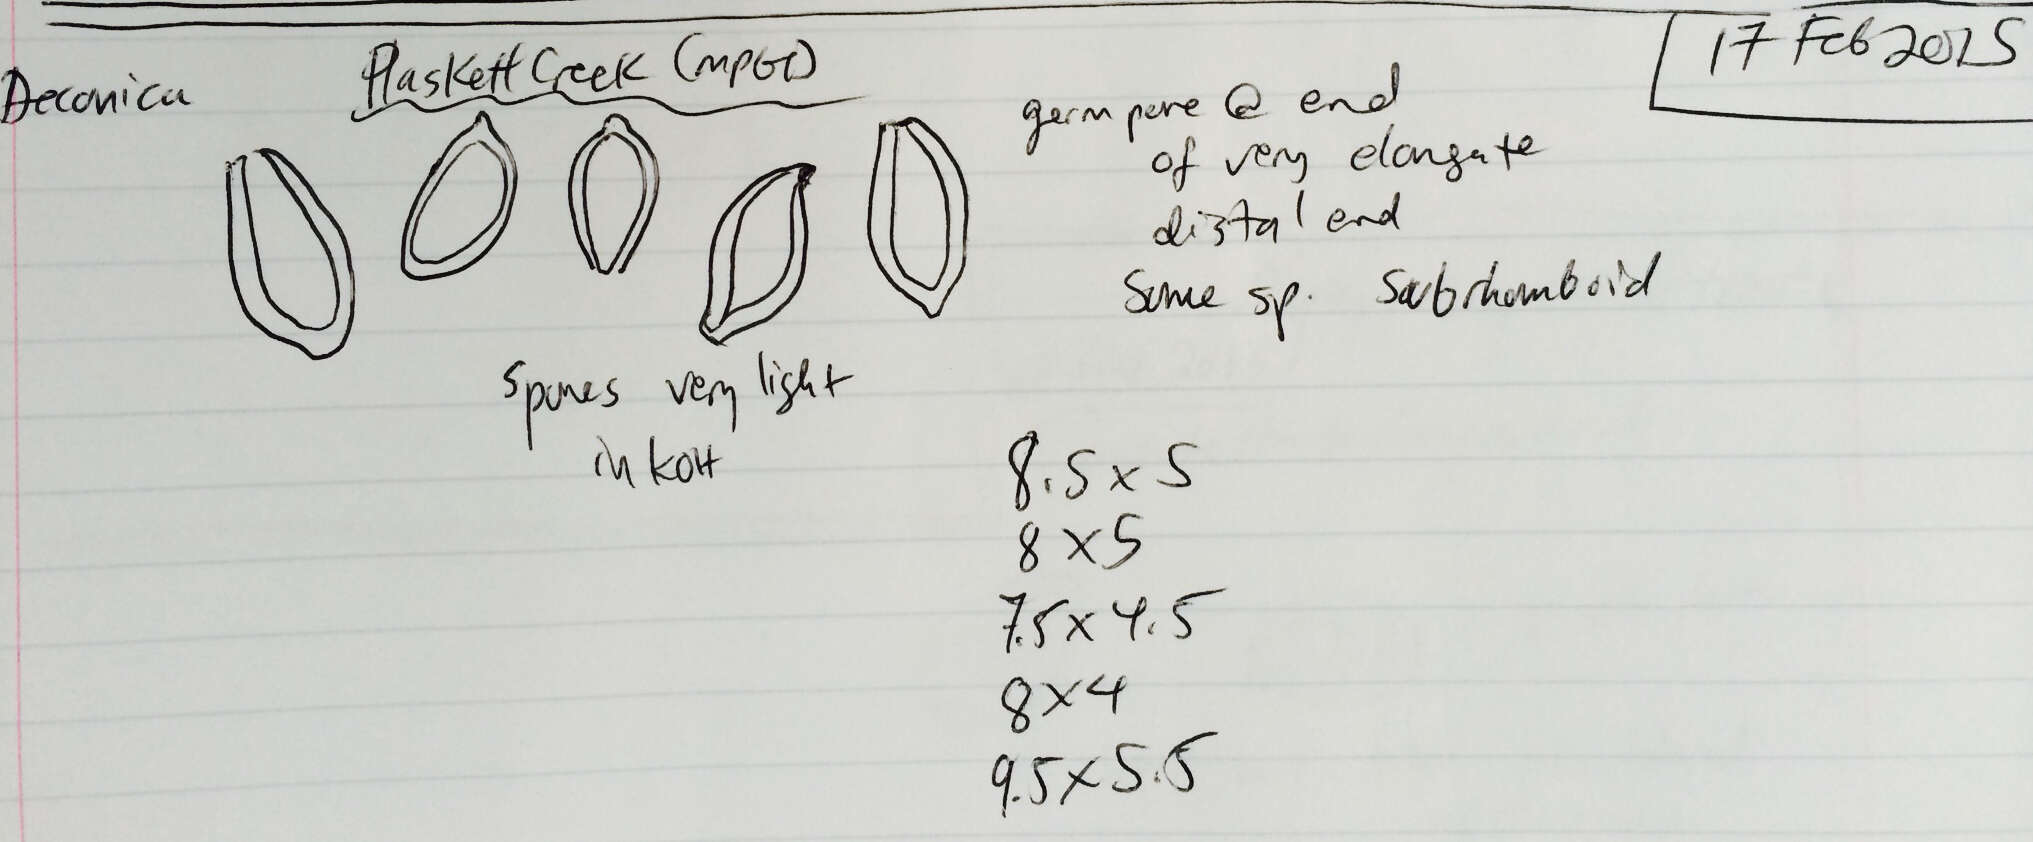 17 Feb 2015
Deconica
Plaskett Creek (MPGT)
germ pore @ end
of very elongate
distal end
Some sp. subrhomboid
Spores very light
in KOH
8.5 x 5
8 x 5
7.5 x 4.5
8 x 4
9.5 x 5.5